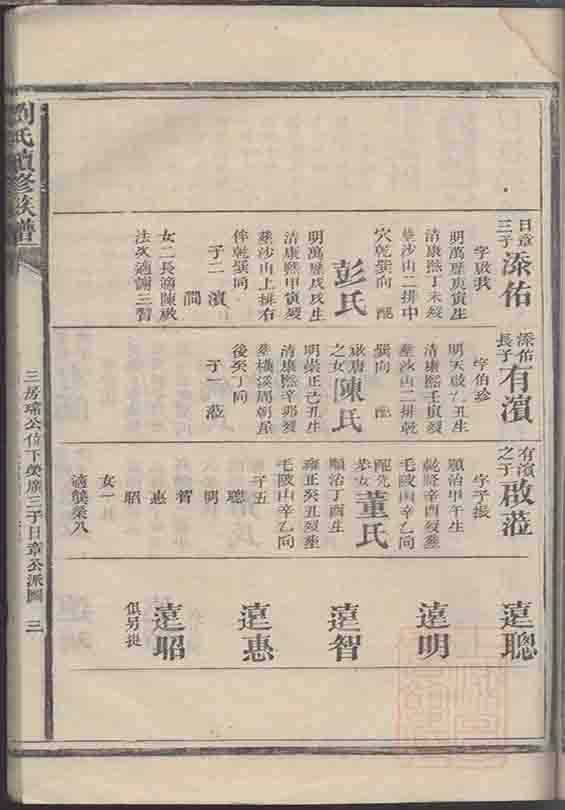 劉氏續修族譜
三房瑞公位下榮廣三子日章公派圖 三
日章三子
添佑
字啟我
明萬歷庚寅生
清康熙丁未歿
塟沙山二排中
穴乾巽向 配
彭氏
明萬歷戊戌生
清康熙甲寅歿
塟沙山上排右
伴乾巽向
子二 濱
澗
女二長適陳啟
法次適謝三賢
添佑長子
有濱
字伯珍
明天啟乙丑生
清康熙壬寅歿
塟沙山二排乾
巽向 配
啟唐之女
陳氏
明崇正己丑生
清康熙辛卯歿
塟橫溪周朝星
後癸丁向
子一 蒞
有濱之子
啟蒞
字子振
順治甲午生
乾隆辛酉歿塟
毛陂山辛乙向
配先恭女
董氏
順治丁酉生
雍正癸丑歿塟
毛陂山辛乙向
子五
聰
明
智
惠
昭
女一
適龔榮八
遠聰
遠明
遠智
遠惠
遠昭
俱另提